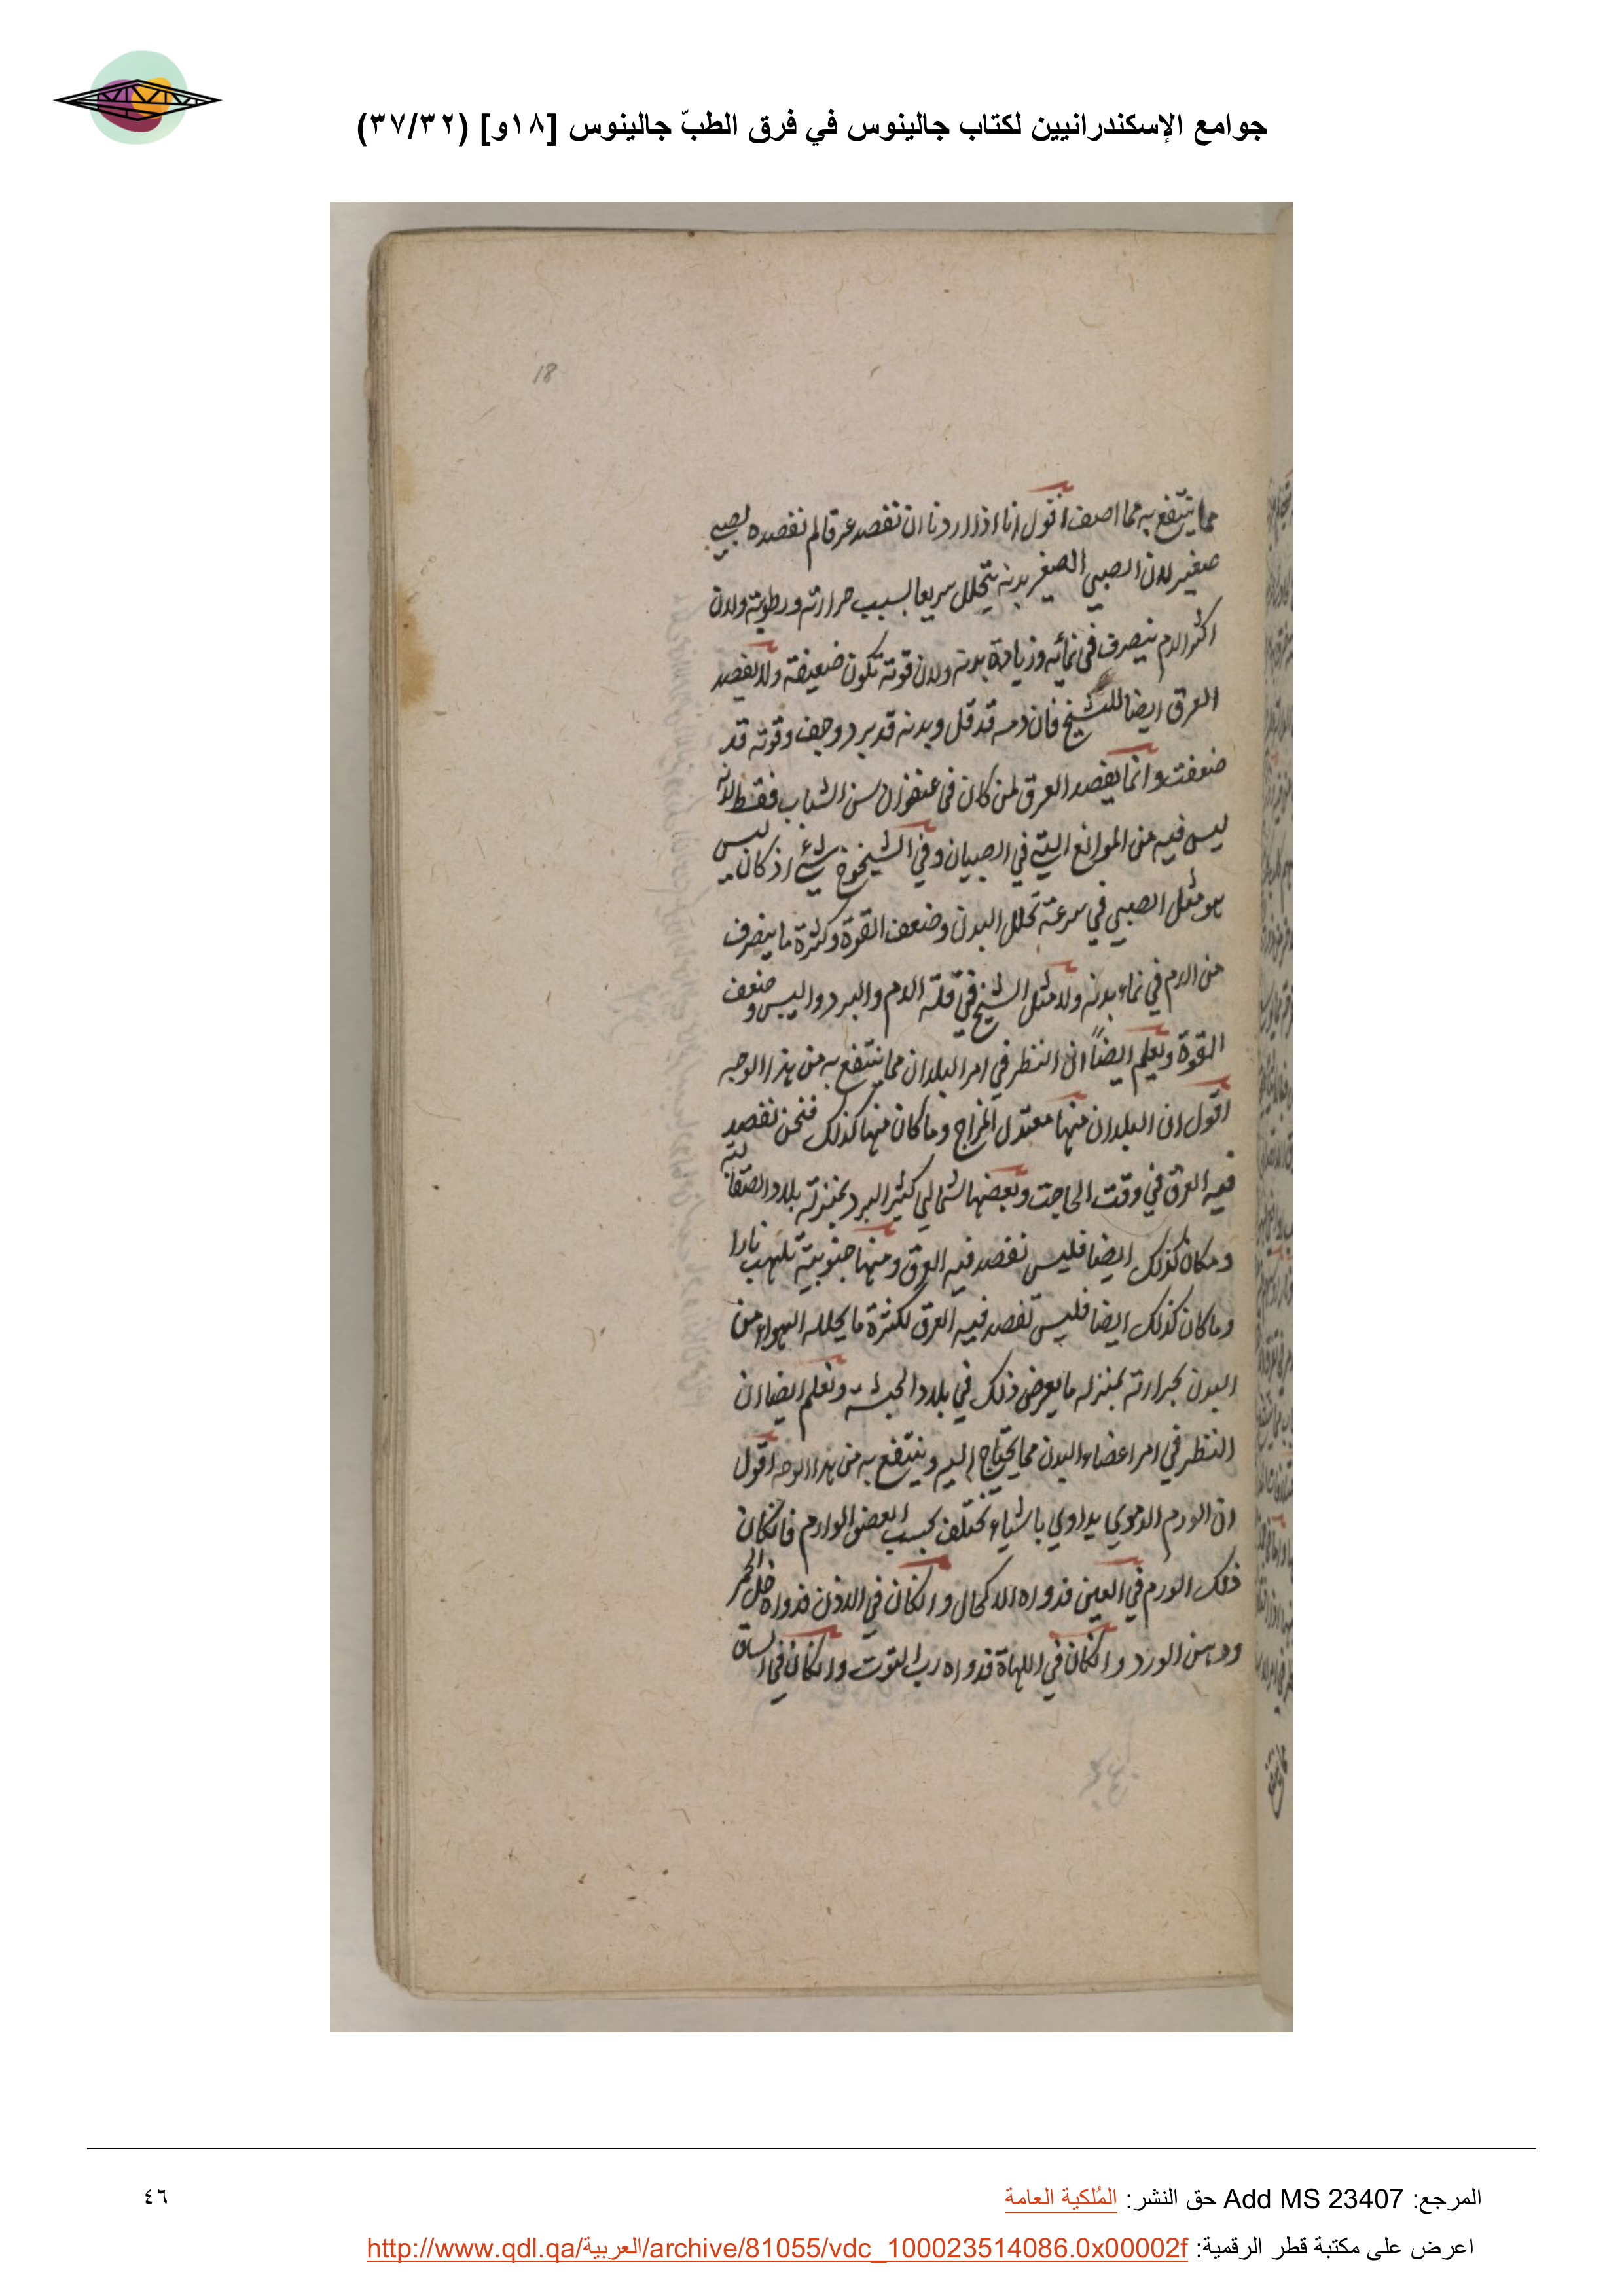 جوامع الإسكندرانيين لكتاب جالينوس في فرق الطبّ جالينوس [١٨و] (٣٧/٣٢)
18
مما ينتفع به مما اصف اقول انا اذا اردنا ان نفصد عرقا لم نفصده لصبي
صغير لان الصبي الصغير بدنه يتحلل سريعا لسبب حرارته ورطوبته ولان
اكثر الدم ينصرف في نمائه وزيادة بدنه ولان قوته تكون ضعيفة ولا يفصد
العرق ايضا للشيخ فان دمه قد قل وبدنه قد برد وجف وقوته قد
ضعفت وانما يفصد العرق لمن كان في عنفوان سن الشباب فقط لانه
ليس فيه من الموانع التي في الصبيان وفي الشيخوخ شئ اذ كان ليس
هو مثل الصبي في سرعة تحلل البدن وضعف القوة وكثرة ما ينصرف
من الدم في نماء بدنه ولا مثل الشيخ في قلة الدم والبرد واليبس وضعف
القوة ونعلم ايضاً ان النظر في امر البلدان مما ينتفع به من هذا الوجه
اقول ان البلدان منها معتدل المزاج وما كان منها كذلك فنحن نفصد
فيه العرق في وقت الحاجت وبعضها شمالي كثير البرد بمنزلة بلاد الصقالبة
ومكان كذلك ايضا فليس نفصد فيه العرق ومنها جنوبية تلهب نارا
وما كان كذلك ايضا فليس نفصد فيه العرق لكثرة ما يحلله الهواء من
البدن بحرارته بمنزله ما يعرض ذلك في بلاد الحبشة ونعلم ايضا ان
النظر في امر اعضاء البدن مما يحتاج اليه وينتفع به من هذا الوجه اقول
ان الورم الدموي يداوي باشياء تختلف بحسب العضو الوارم فانكان
ذلك الورم في العين فدواه الاكحال وانكان في الاذن فدواه خل الخمر
ودهن الورد وانكان في اللهاة فدواه رب التوت وانكان في الساق
المرجع: Add MS 23407 حق النشر: المُلكية العامة
٤٦
اعرض على مكتبة قطر الرقمية: http://www.qdl.qa/العربية/archive/81055/vdc_100023514086.0x00002f